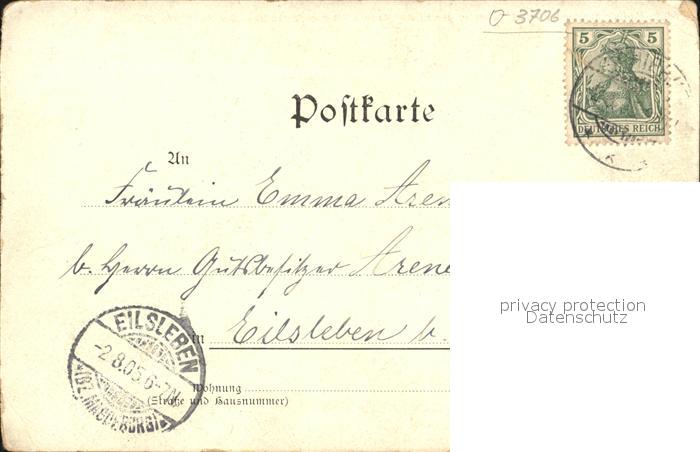 O 3706
5 5
DEUTSCHES REICH
Postkarte
An
Fräulein Emma
b. Herrn Gutsbesitzer
in Eilsleben b.
Wohnung
(Straße und Hausnummer)
EILSLEBEN
-2.8.05.6-7N
(BZ. MAGDEBURG)
privacy protection
Datenschutz